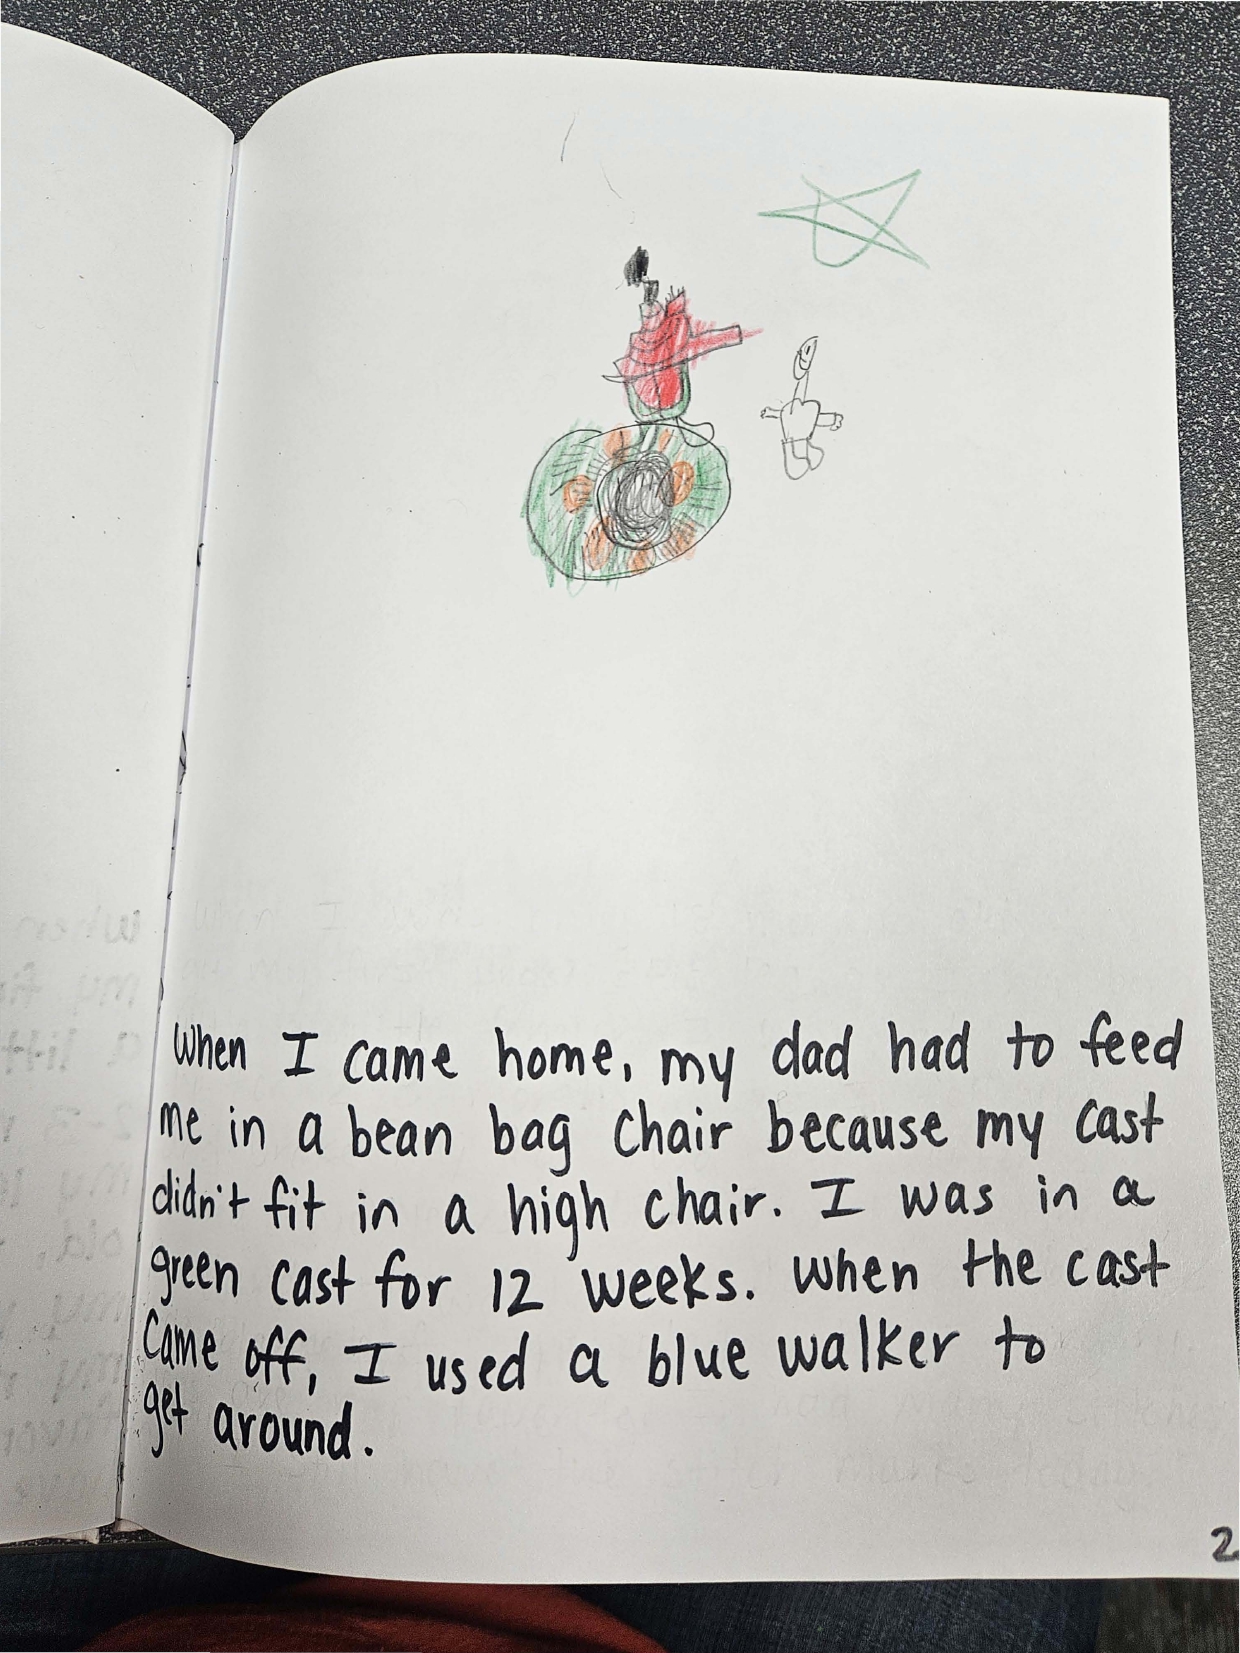 When I came home, my dad had to feed
me in a bean bag chair because my cast
didn't fit in a high chair. I was in a
green cast for 12 weeks. When the cast
came off, I used a blue walker to
get around.
2